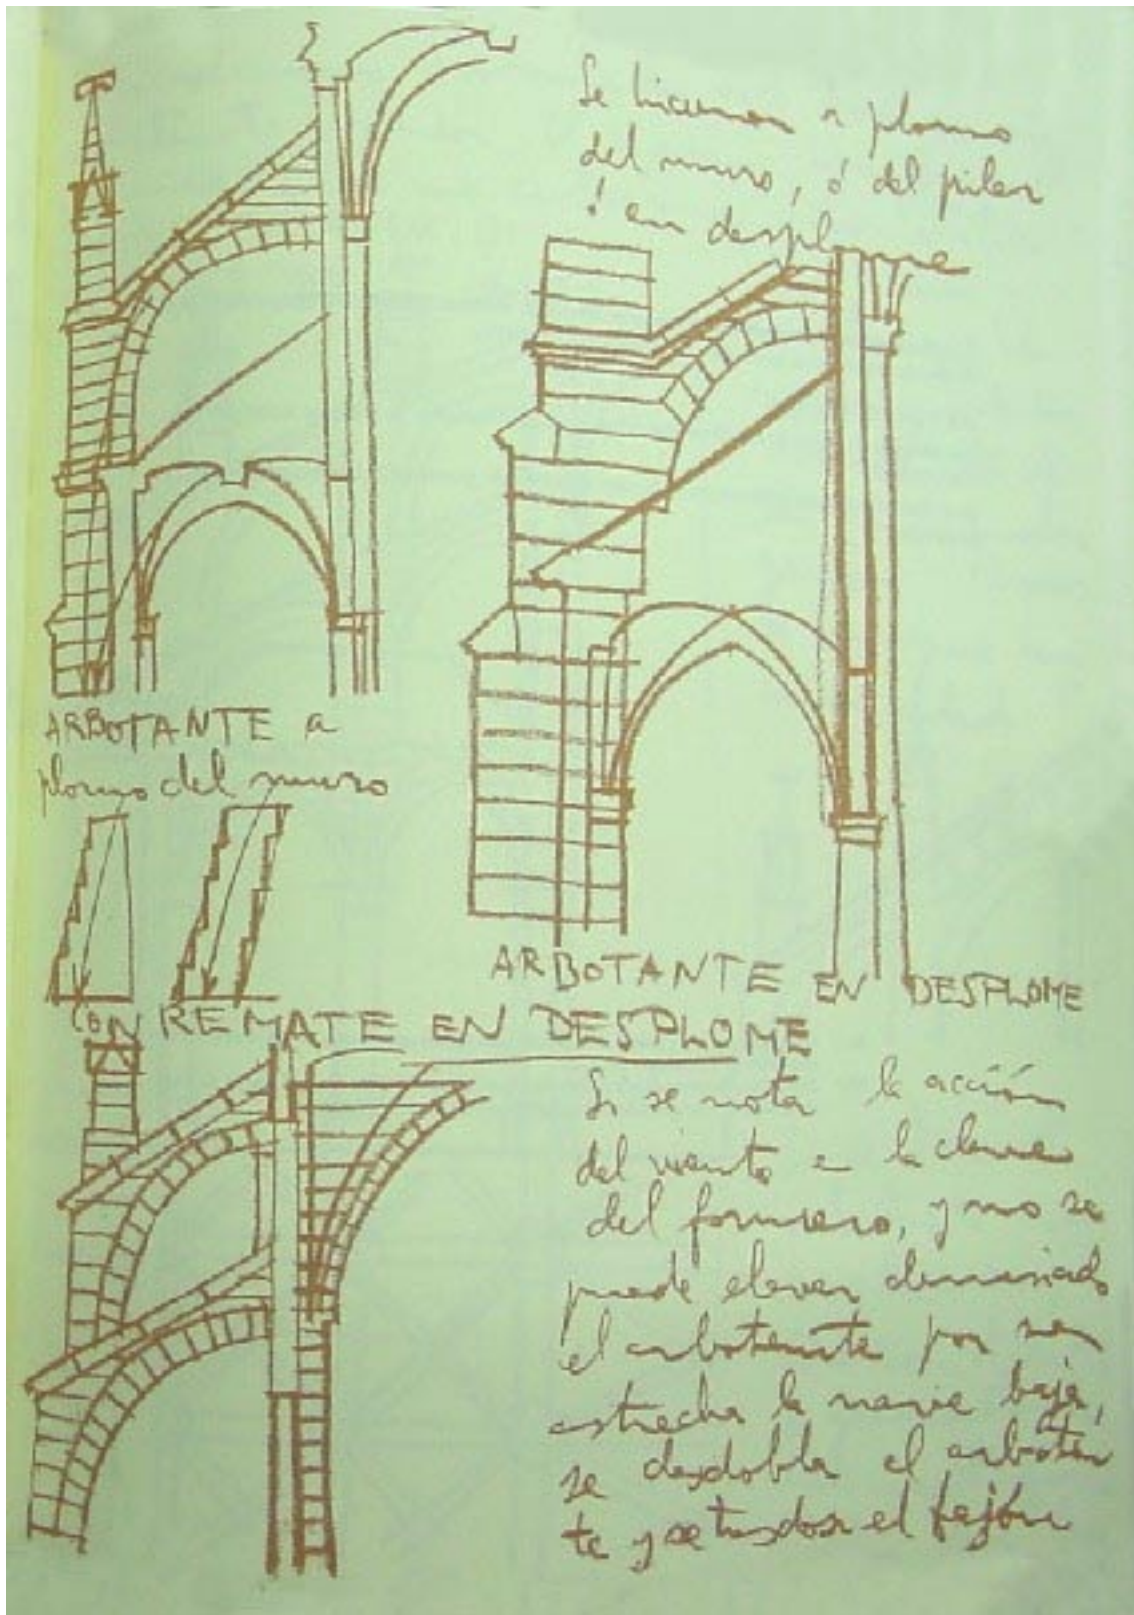 Se hicieron a plomo
del muro, ó del pilar
ó en desplome
ARBOTANTE a
plomo del muro
ARBOTANTE EN DESPLOME
CON REMATE EN DESPLOME
Si se nota la acción
del viento en la clave
del formero, y no se
puede elevar demasiado
el arbotante por ser
estrecha la nave baja,
se desdobla el arbotan
te y se trasdosa el fajón